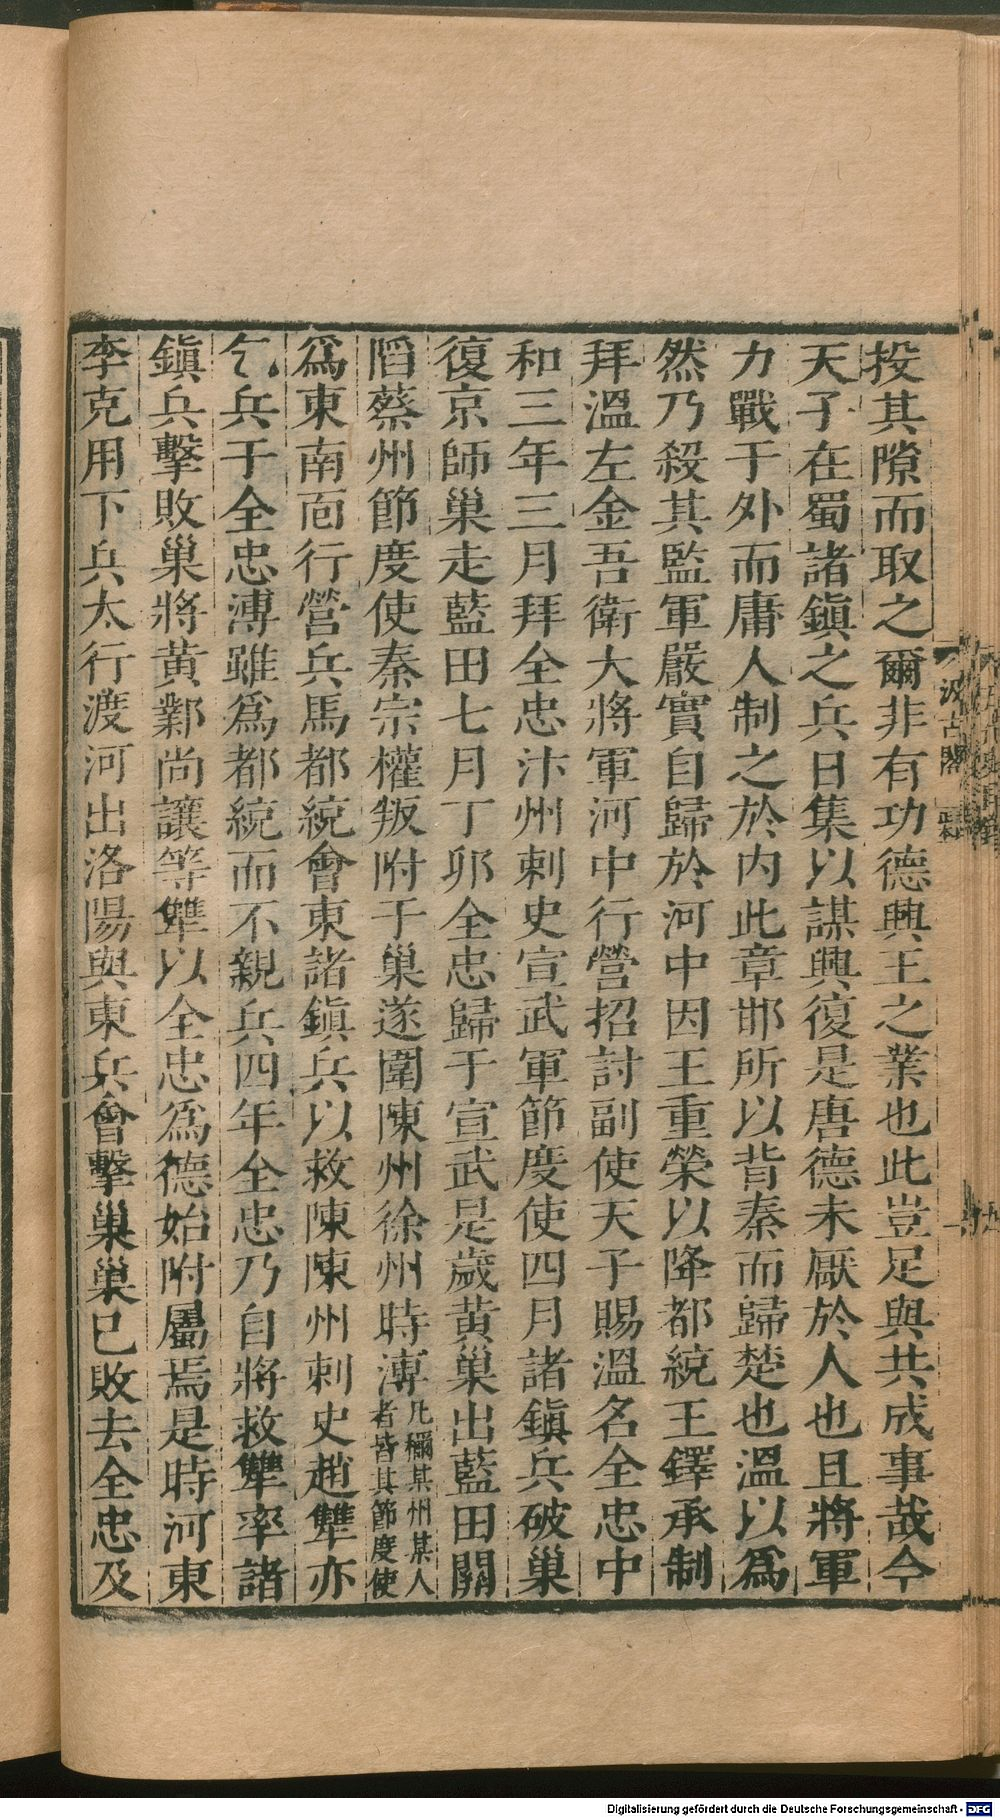 投其隙而取之爾非有功德興王之業也此豈足與共成事哉今
天子在蜀諸鎭之兵日集以謀興復是唐德未厭於人也且將軍
力戰于外而庸人制之於内此章邯所以背秦而歸楚也溫以爲
然乃殺其監軍嚴實自歸於河中因王重榮以降都統王鐸承制
拜溫左金吾衛大將軍河中行營招討副使天子賜溫名全忠中
和三年三月拜全忠汴州刺史宣武軍節度使四月諸鎭兵破巢
復京師巢走藍田七月丁卯全忠歸于宣武是歲黄巢出藍田關
陷蔡州節度使秦宗權叛附于巢遂圍陳州徐州時溥凡稱某州某人者皆其節度使
爲東南面行營兵馬都統會東諸鎭兵以救陳陳州刺史趙犨亦
乞兵于全忠溥雖爲都統而不親兵四年全忠乃自將救犨率諸
鎭兵擊敗巢將黄鄴尚讓等犨以全忠爲德始附屬焉是時河東
李克用下兵太行渡河出洛陽與東兵會擊巢巢已敗去全忠及
汲古閣
Digitalisierung gefördert durch die Deutsche Forschungsgemeinschaft - DFG